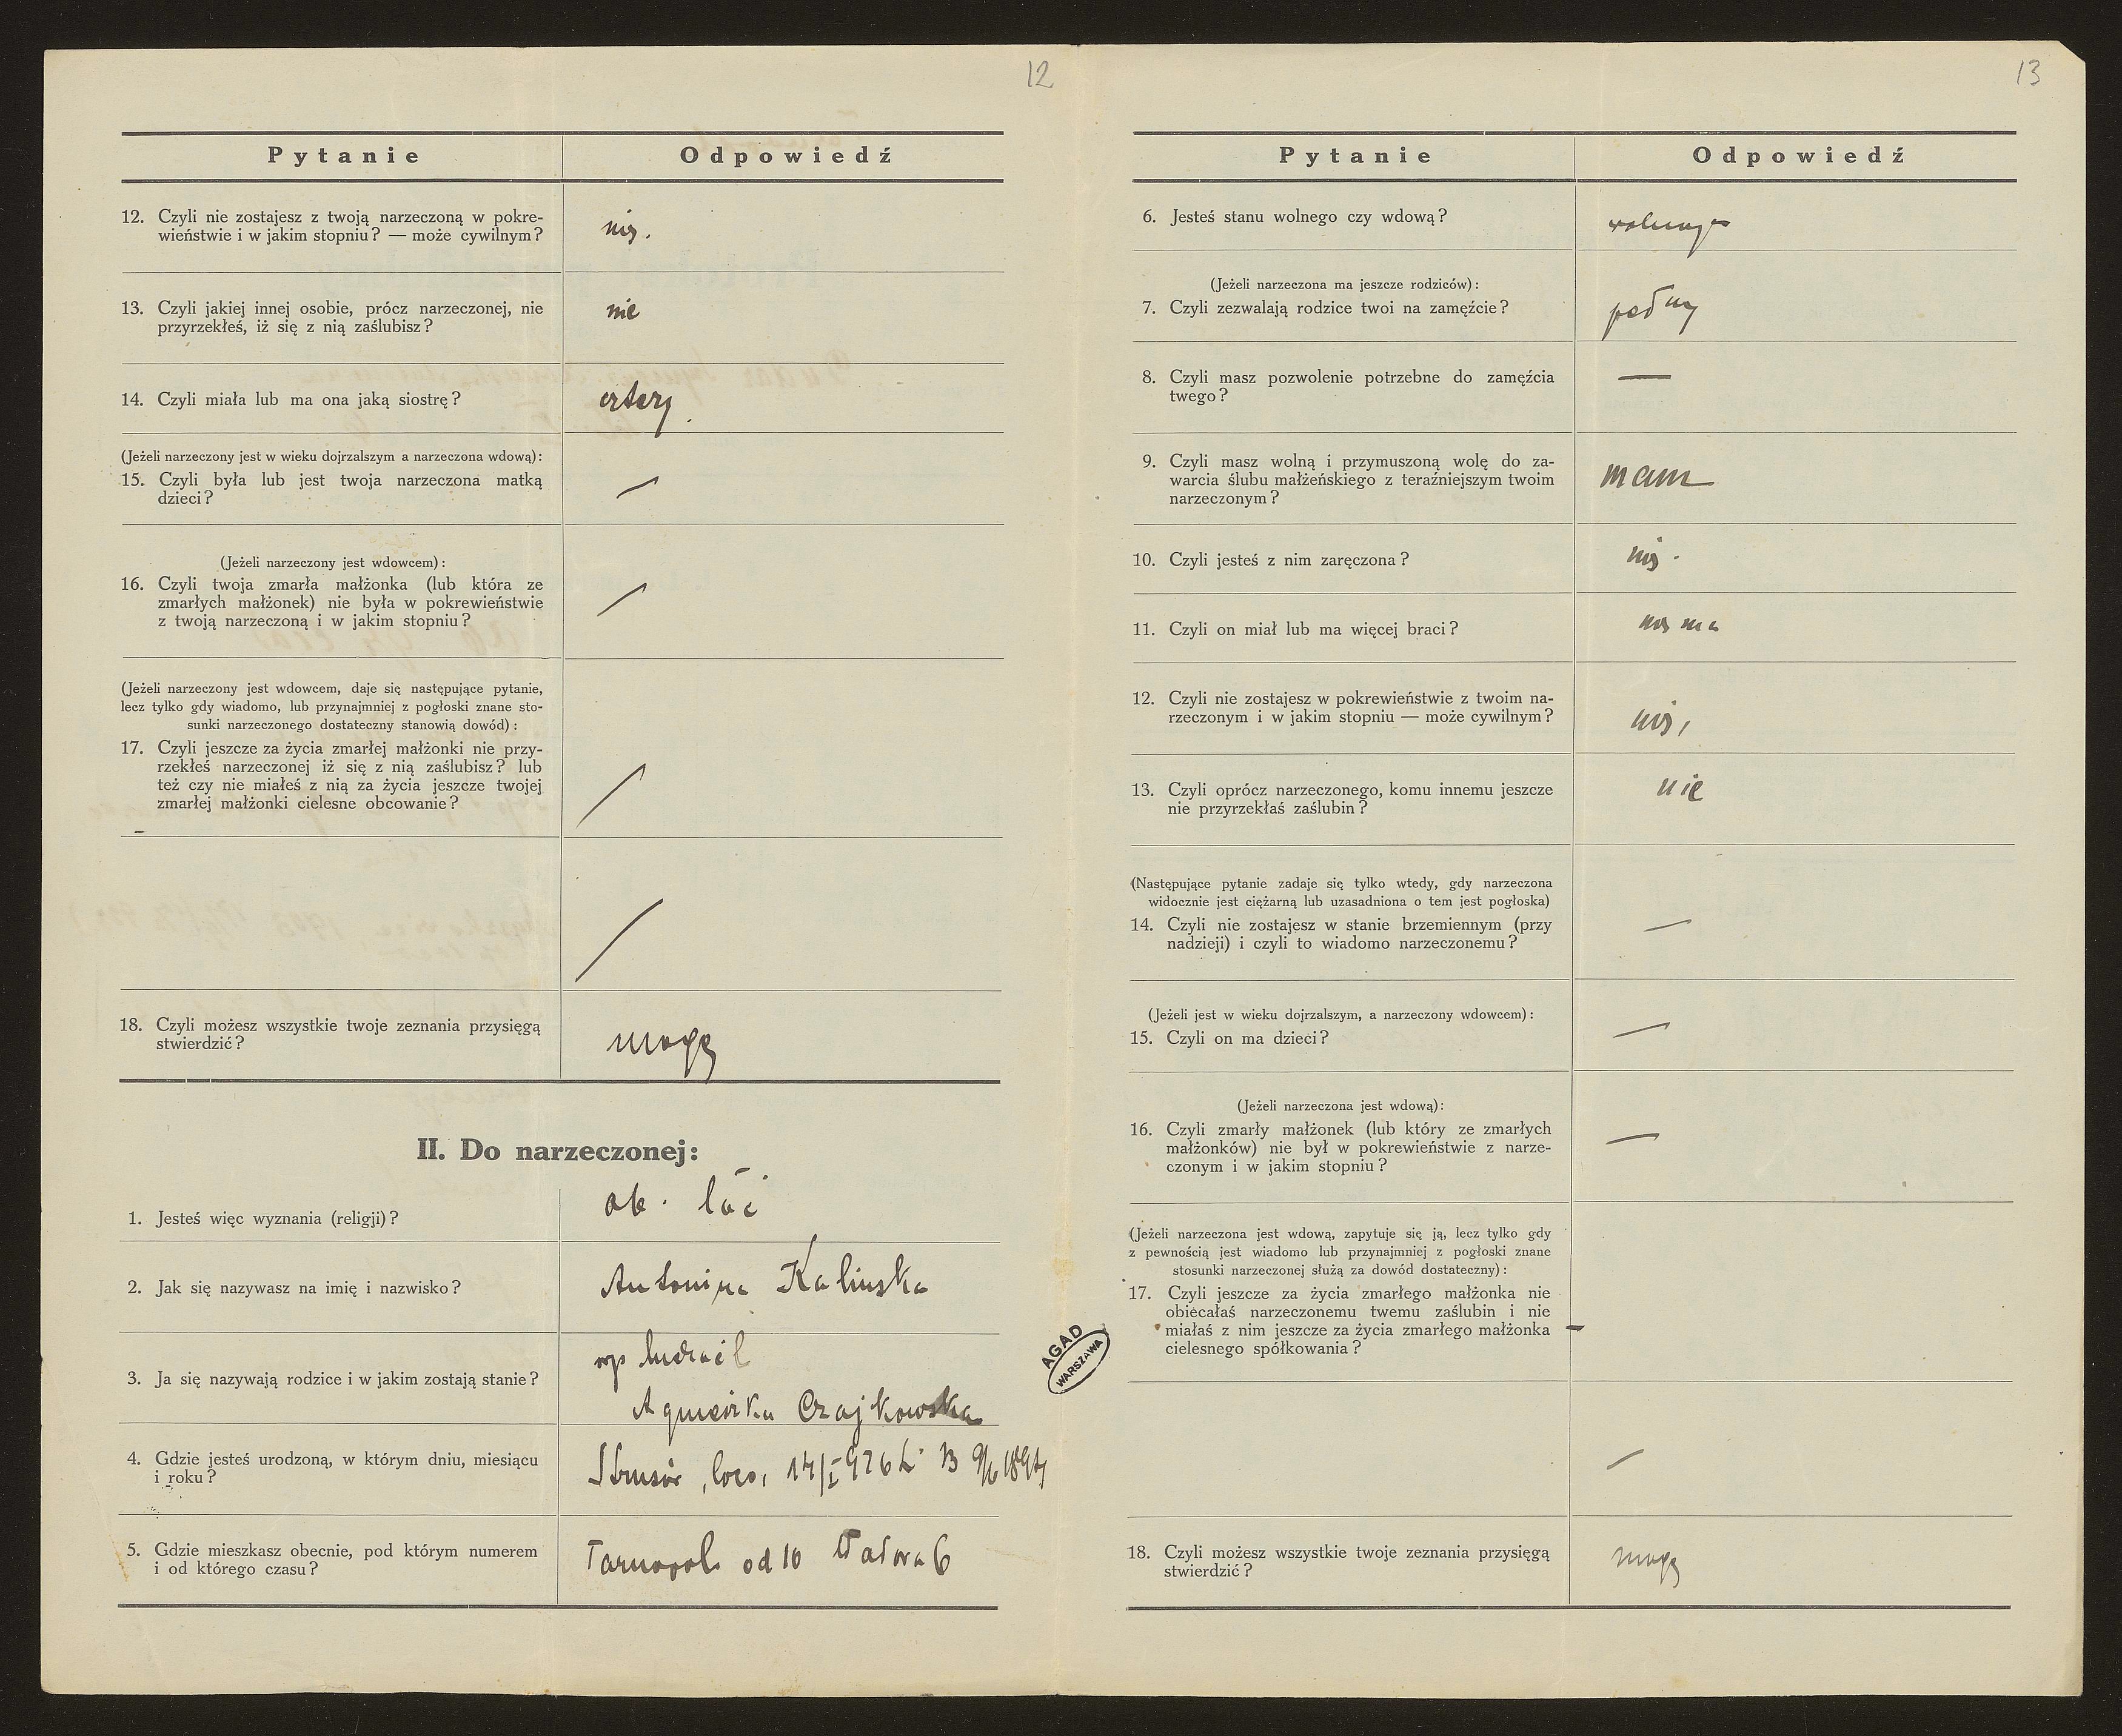 12
Pytanie
Odpowiedź
12. Czyli nie zostajesz z twoją narzeczoną w pokre-
wieństwie i w jakim stopniu? — może cywilnym?
nie.
13. Czyli jakiej innej osobie, prócz narzeczonej, nie
przyrzekłeś, iż się z nią zaślubisz?
nie
14. Czyli miała lub ma ona jaką siostrę?
cztery.
(Jeżeli narzeczony jest w wieku dojrzalszym a narzeczona wdową):
15. Czyli była lub jest twoja narzeczona matką
dzieci?
—
(Jeżeli narzeczony jest wdowcem):
16. Czyli twoja zmarła małżonka (lub która ze
zmarłych małżonek) nie była w pokrewieństwie
z twoją narzeczoną i w jakim stopniu?
—
(Jeżeli narzeczony jest wdowcem, daje się następujące pytanie,
lecz tylko gdy wiadomo, lub przynajmniej z pogłoski znane sto-
sunki narzeczonego dostateczny stanowią dowód):
17. Czyli jeszcze za życia zmarłej małżonki nie przy-
rzekłeś narzeczonej iż się z nią zaślubisz? lub
też czy nie miałeś z nią za życia jeszcze twojej
zmarłej małżonki cielesne obcowanie?
—
—
18. Czyli możesz wszystkie twoje zeznania przysięgą
stwierdzić?
mogę
II. Do narzeczonej:
1. Jesteś więc wyznania (religji)?
ob. łać
2. Jak się nazywasz na imię i nazwisko?
Antonina Kalinska
3. Ja się nazywają rodzice i w jakim zostają stanie?
Agnieszka Czajkowska
4. Gdzie jesteś urodzoną, w którym dniu, miesiącu
i roku?
loco, 14/I
5. Gdzie mieszkasz obecnie, pod którym numerem
i od którego czasu?
Tarnopol od 10
AGAD
WARSZAWA
13
Pytanie
Odpowiedź
6. Jesteś stanu wolnego czy wdową?
wolnego
(Jeżeli narzeczona ma jeszcze rodziców):
7. Czyli zezwalają rodzice twoi na zamęźcie?
8. Czyli masz pozwolenie potrzebne do zamęźcia
twego?
—
9. Czyli masz wolną i przymuszoną wolę do za-
warcia ślubu małżeńskiego z teraźniejszym twoim
narzeczonym?
mam
10. Czyli jesteś z nim zaręczona?
nie.
11. Czyli on miał lub ma więcej braci?
nie ma
12. Czyli nie zostajesz w pokrewieństwie z twoim na-
rzeczonym i w jakim stopniu — może cywilnym?
nie,
13. Czyli oprócz narzeczonego, komu innemu jeszcze
nie przyrzekłaś zaślubin?
nie
(Następujące pytanie zadaje się tylko wtedy, gdy narzeczona
widocznie jest ciężarną lub uzasadniona o tem jest pogłoska)
14. Czyli nie zostajesz w stanie brzemiennym (przy
nadzieji) i czyli to wiadomo narzeczonemu?
—
(Jeżeli jest w wieku dojrzalszym, a narzeczony wdowcem):
15. Czyli on ma dzieci?
—
(Jeżeli narzeczona jest wdową):
16. Czyli zmarły małżonek (lub który ze zmarłych
małżonków) nie był w pokrewieństwie z narze-
czonym i w jakim stopniu?
—
(Jeżeli narzeczona jest wdową, zapytuje się ją, lecz tylko gdy
z pewnością jest wiadomo lub przynajmniej z pogłoski znane
stosunki narzeczonej służą za dowód dostateczny):
17. Czyli jeszcze za życia zmarłego małżonka nie
obiecałaś narzeczonemu twemu zaślubin i nie
miałaś z nim jeszcze za życia zmarłego małżonka
cielesnego spółkowania?
—
—
18. Czyli możesz wszystkie twoje zeznania przysięgą
stwierdzić?
mogę